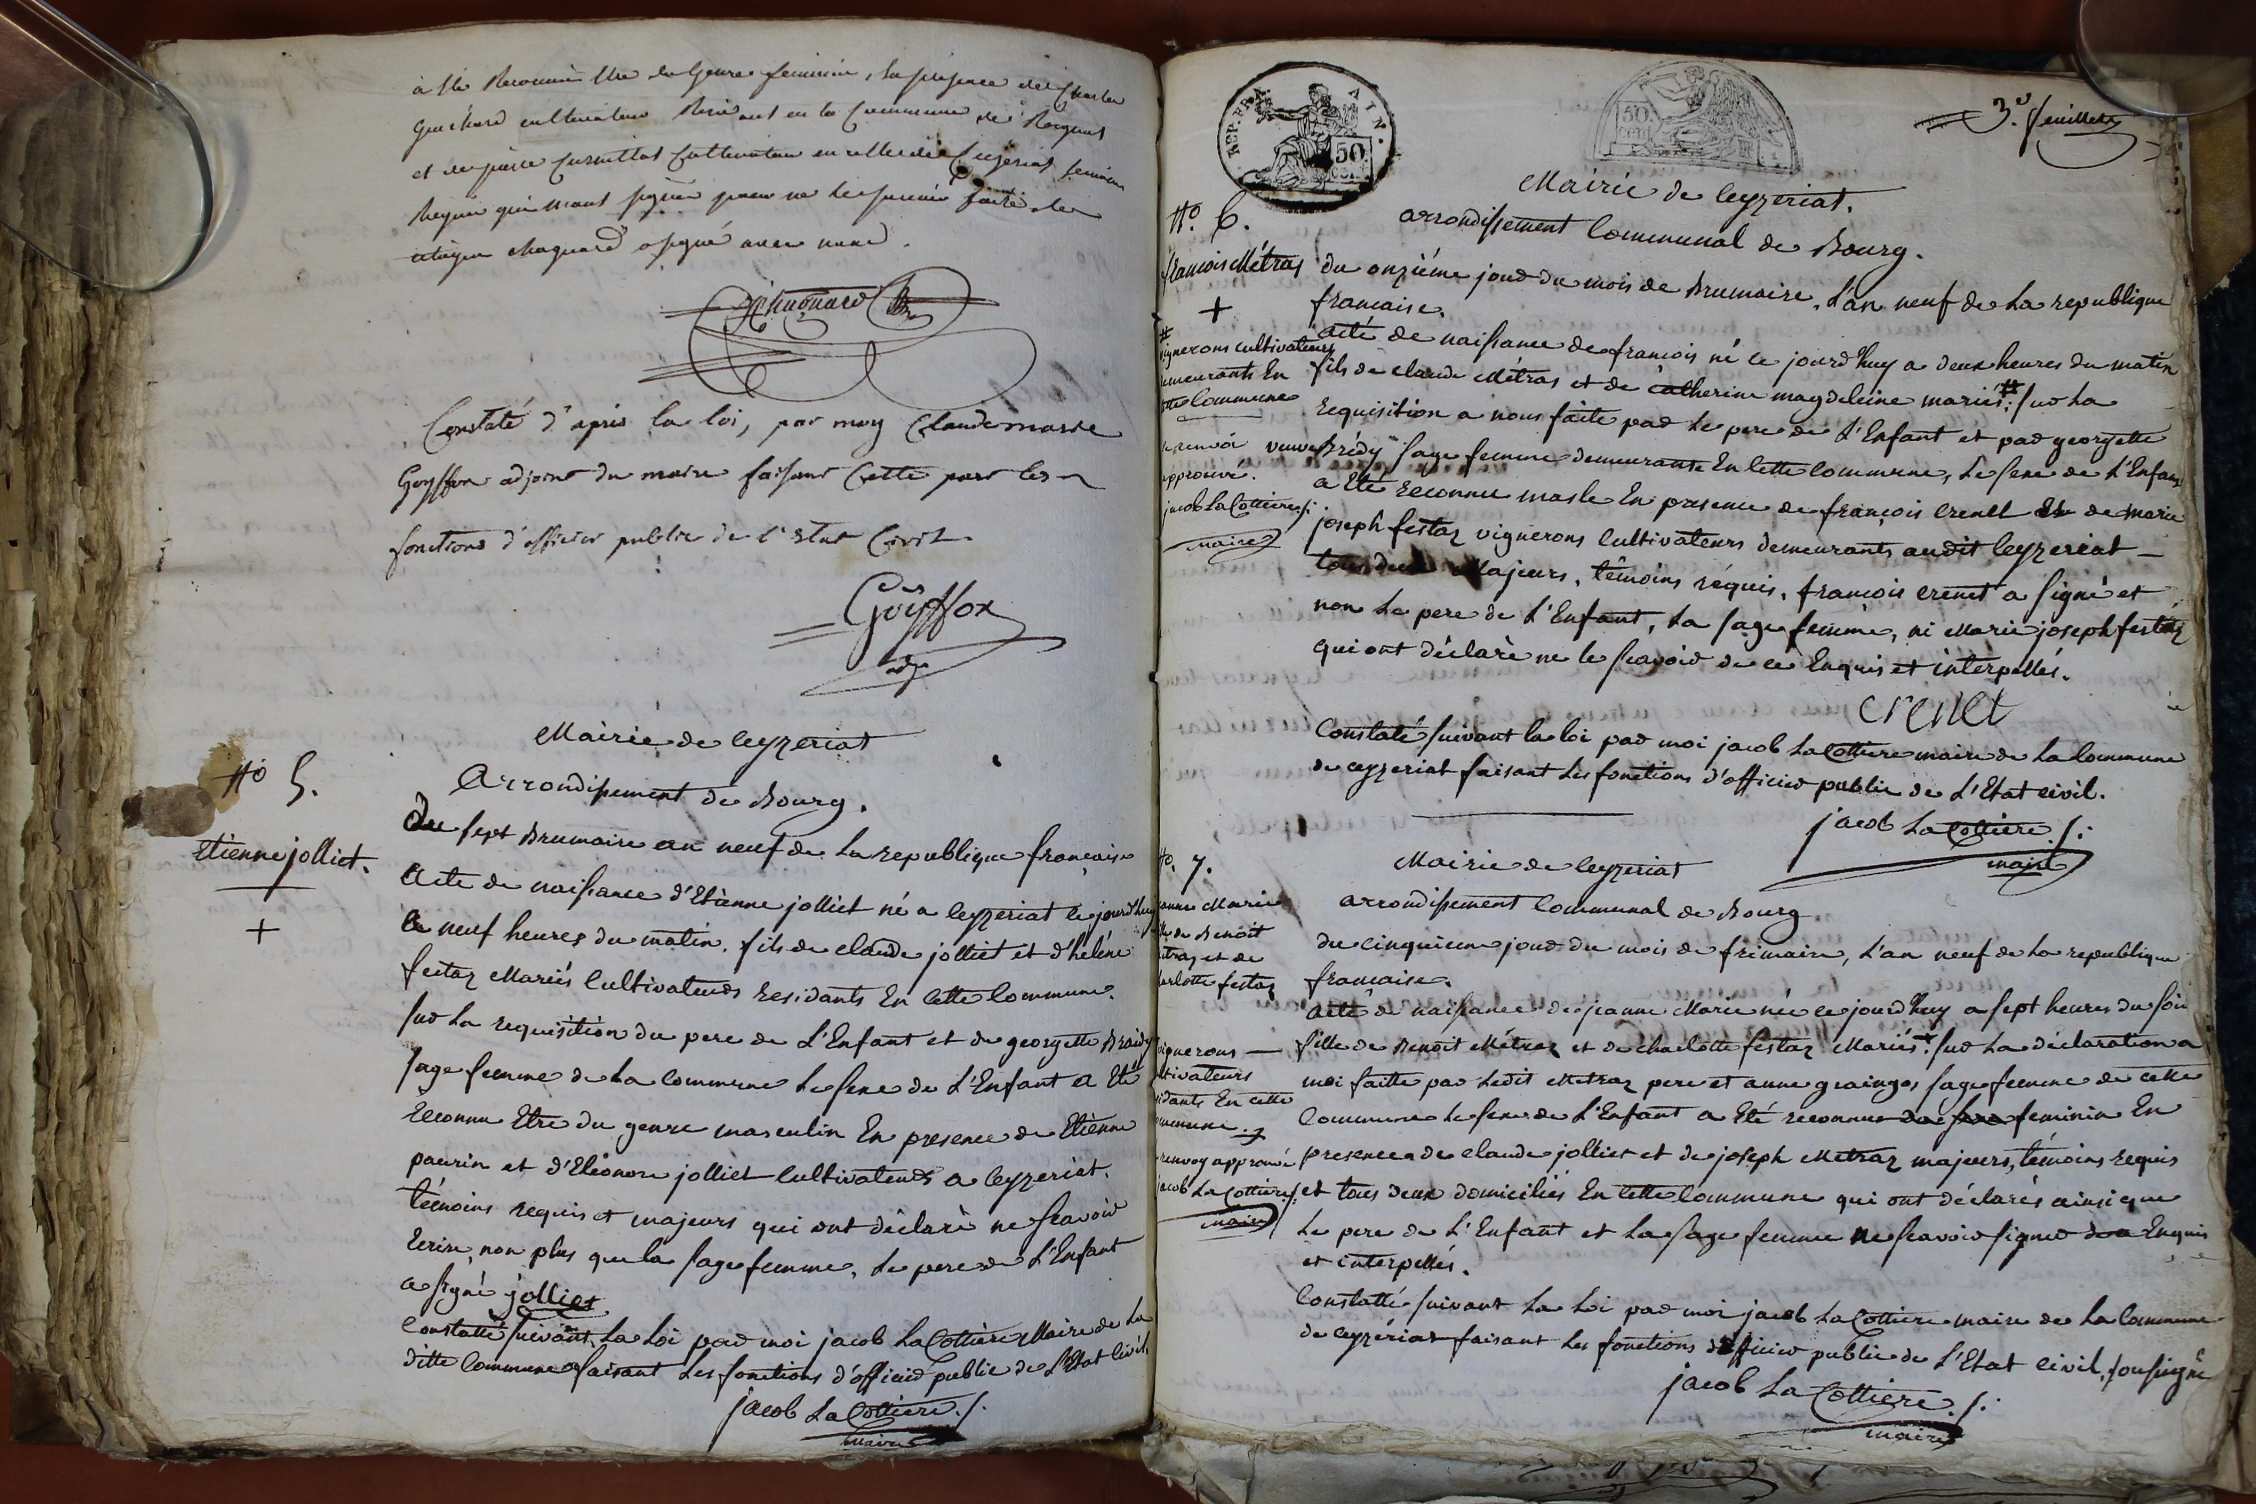 à Eté Reconnu Etre du Genre feminin, En présence de Charles
Guichard cultivateur Residant en la Commune de
et de pierre Cultivateur en celle de Ceyzeriat temoins
Requis qui n'ont signés pour ne le scavoir faire. le
citoyen chaguard a signé avec nous.
Constaté d'après la loi, par moy Claude marie
Goyffon adjoint du maire faisant Cette part les
fonctions d'officier public de l'Etat Civil
Goÿffon
adj
Mairie de Ceyzeriat
No 5.
Arrondissement de Bourg.
Etienne jolliet.
+
Du sept Brumaire an neuf de La republique française
Acte de naissance d'Etienne jolliet né a Ceyzeriat cejourd'huy
a neuf heures du matin, fils de claude jolliet et d'heléne
festaz Mariés Cultivateurs residants En Cette Commune.
sur La requisition du pere de L'Enfant et de georgette Braidy
sage femme de La Commune Le sexe de L'Enfant a Eté
Reconnu Etre du genre masculin En presence de Etienne
paurin et d'Eléonore jolliet Cultivateurs a Ceyzeriat.
témoins requis et majeurs qui ont déclaré ne scavoir
Ecrire, non plus que la sage femme, Le pere de L'Enfant
a signé jolliet
Constatté suivant La Loi par moi jacob La Cottiere Maire de La
ditte Commune faisant Les fonctions d'officier public de L'Etat Civil.
jacob La Cottiere ./.
maire
REP. FRA. AIN.
50
50
3e. feuillet
Mairie de Ceyzeriat.
No. 6.
arrondissement Communal de Bourg.
francois Métras
+
du onziéme jour du mois de Brumaire, L'an neuf de La republique
francaise.
acte de naissance de francois né ce jourd'huy a deux heures du matin
fils de claude Métras et de catherine magdeleine mariés # sur La
requisition a nous faite par Le pere de L'Enfant et par georgette
veuve Brédy sage femme demeurante En Cette Commune, Le sexe de L'Enfant
a Eté reconnu masle En presence de françois crenet et de marie
joseph festaz vignerons Cultivateurs demeurants audit Ceyzeriat
tous deux Majeurs, témoins réquis, francois crenet a signé et
non Le pere de L'Enfant, La sage femme, ni Marie joseph festaz
qui ont déclaré ne le scavoir de ce Enquis et interpellés.
# vignerons cultivateurs
demeurants En
cette Commune
renvoi
approuvé.
jacob La Cottiere ./.
maire
crenet
Constaté suivant la loi par moi jacob La Cottiere maire de La Commune
de ceyzeriat faisant Les fonctions d'officier public de L'Etat civil.
jacob La Cottiere ./.
maire
No. 7.
Mairie de Ceyzeriat
arrondissement Communal de Bourg.
jeanne Marie
fille de Benoit
Métraz et de
charlotte festaz
du cinquieme jour du mois de frimaire, L'an neuf de La republique
francaise.
acte de naissance de jeanne Marie née ce jourd'huy a sept heures du soir
fille de Benoit Métraz et de charlotte festaz Mariés # sur La déclaration a
moi faitte par Ledit Metraz pere et anne grainger sage femme de cette
Commune Le sexe de L'Enfant a Eté reconnu du sexe feminin En
presence de claude jolliet et de joseph Metraz majeurs, témoins requis
et tous deux domiciliés En Cette Commune qui ont déclarés ainsi que
Le pere de L'Enfant et La sage femme ne scavoir signer de ce Enquis
et interpellés.
vignerons
cultivateurs
residants En cette
Commune.
renvoy approuvé
jacob La Cottiere ./.
maire
Constatté suivant La Loi par moi jacob La Cottiere maire de La Commune
de ceyzériat faisant Les fonctions d'officier public de L'Etat civil, soussigné
jacob La Cottiere ./.
maire